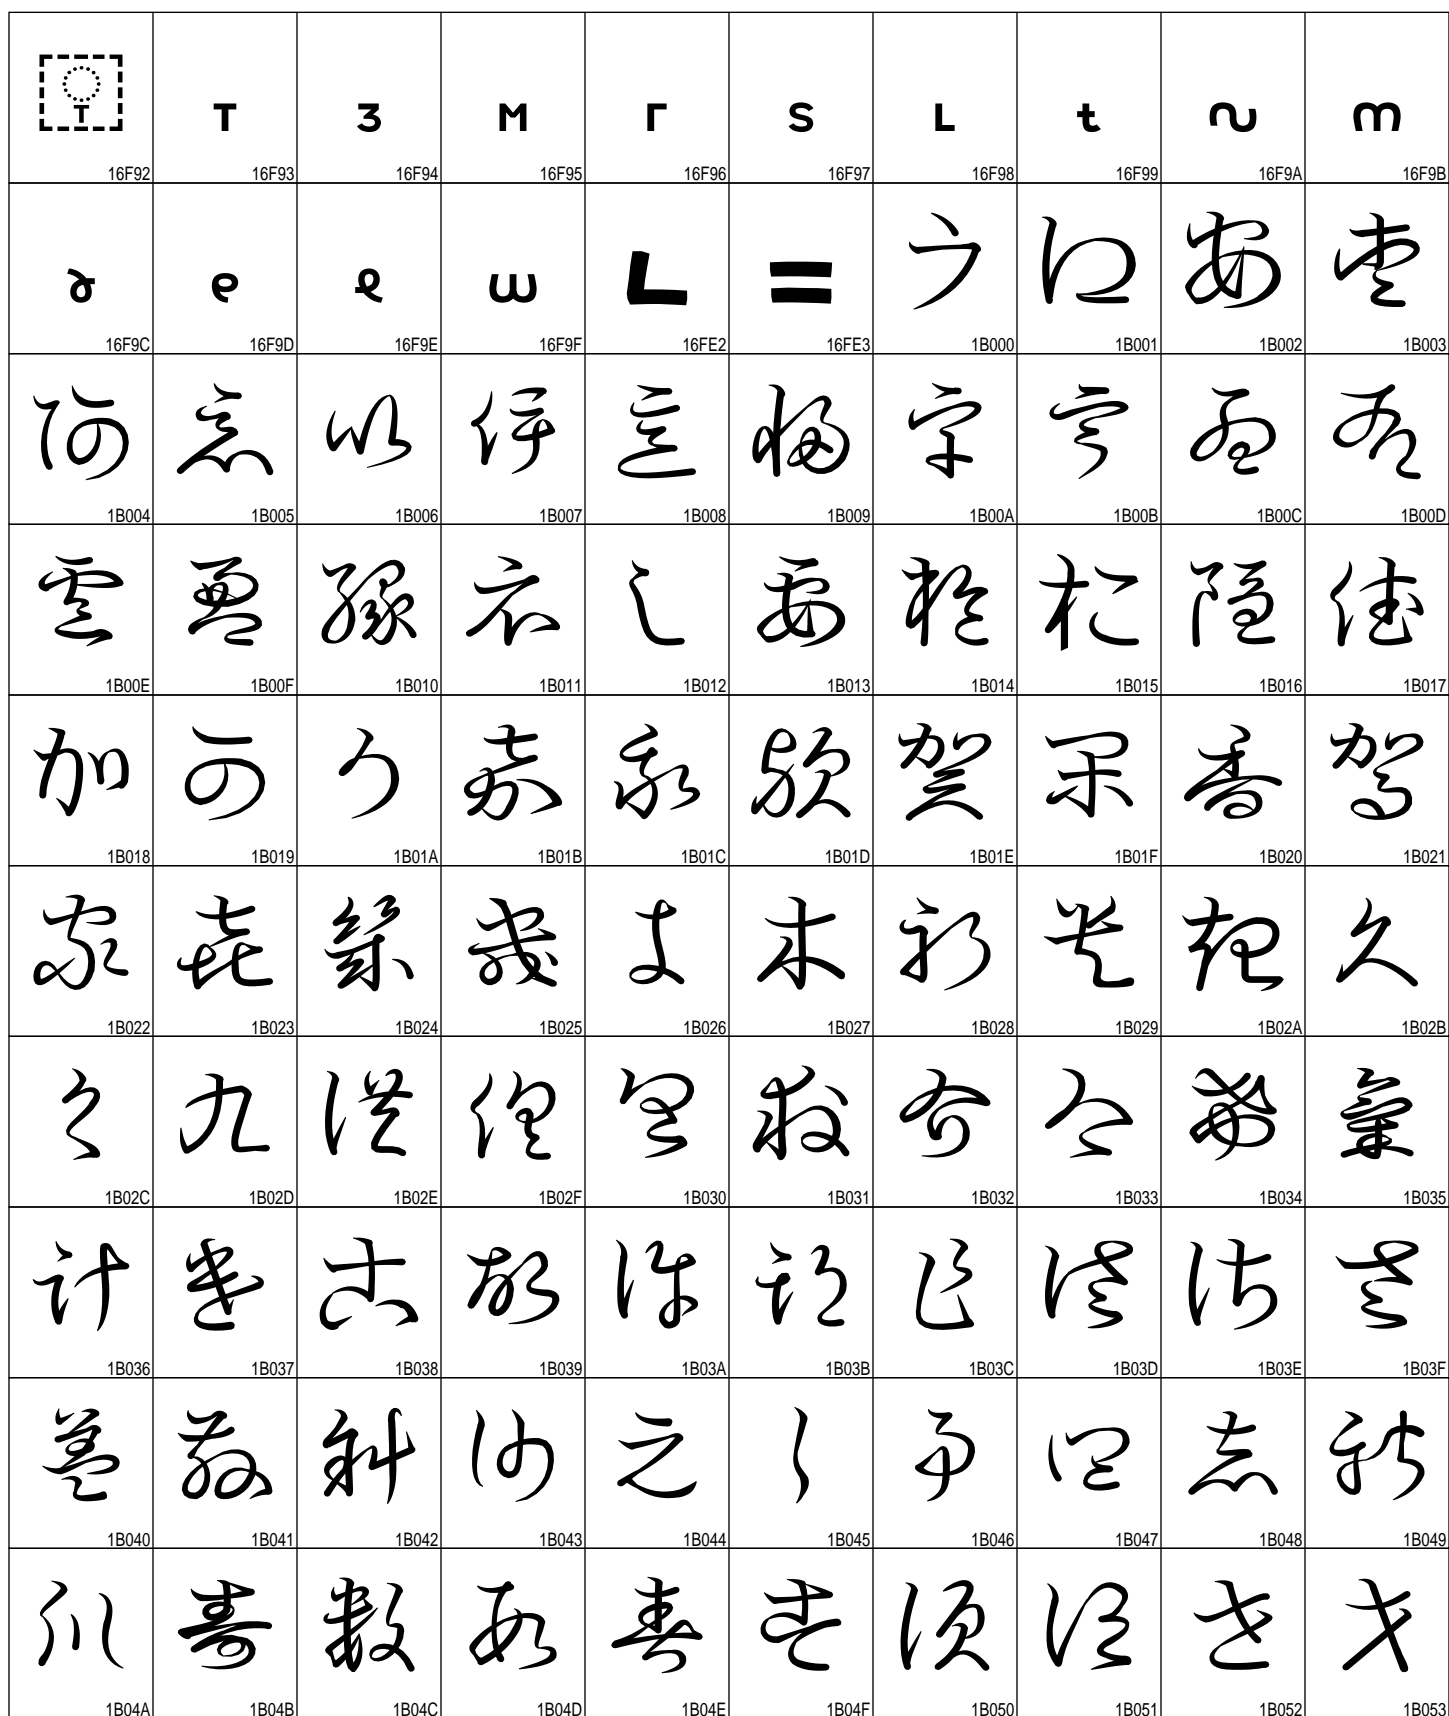 𖾒 𖾓 𖾔 𖾕 𖾖 𖾗 𖾘 𖾙 𖾚 𖾛
16F92 16F93 16F94 16F95 16F96 16F97 16F98 16F99 16F9A 16F9B
𖾜 𖾝 𖾞 𖾟 𖿢 𖿣 𛀀 𛀁 𛀂 𛀃
16F9C 16F9D 16F9E 16F9F 16FE2 16FE3 1B000 1B001 1B002 1B003
𛀄 𛀅 𛀆 𛀇 𛀈 𛀉 𛀊 𛀋 𛀌 𛀍
1B004 1B005 1B006 1B007 1B008 1B009 1B00A 1B00B 1B00C 1B00D
𛀎 𛀏 𛀐 𛀑 𛀒 𛀓 𛀔 𛀕 𛀖 𛀗
1B00E 1B00F 1B010 1B011 1B012 1B013 1B014 1B015 1B016 1B017
𛀘 𛀙 𛀚 𛀛 𛀜 𛀝 𛀞 𛀟 𛀠 𛀡
1B018 1B019 1B01A 1B01B 1B01C 1B01D 1B01E 1B01F 1B020 1B021
𛀢 𛀣 𛀤 𛀥 𛀦 𛀧 𛀨 𛀩 𛀪 𛀫
1B022 1B023 1B024 1B025 1B026 1B027 1B028 1B029 1B02A 1B02B
𛀬 𛀭 𛀮 𛀯 𛀰 𛀱 𛀲 𛀳 𛀴 𛀵
1B02C 1B02D 1B02E 1B02F 1B030 1B031 1B032 1B033 1B034 1B035
𛀶 𛀷 𛀸 𛀹 𛀺 𛀻 𛀼 𛀽 𛀾 𛀿
1B036 1B037 1B038 1B039 1B03A 1B03B 1B03C 1B03D 1B03E 1B03F
𛁀 𛁁 𛁂 𛁃 𛁄 𛁅 𛁆 𛁇 𛁈 𛁉
1B040 1B041 1B042 1B043 1B044 1B045 1B046 1B047 1B048 1B049
𛁊 𛁋 𛁌 𛁍 𛁎 𛁏 𛁐 𛁑 𛁒 𛁓
1B04A 1B04B 1B04C 1B04D 1B04E 1B04F 1B050 1B051 1B052 1B053